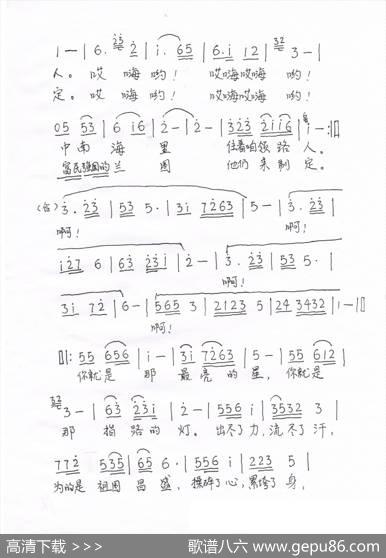 1 — | 6. 2̇ | i. 65 | 6.i 12 | 3 — |
人。 哎 嗨 哟! 哎嗨嗨 哟!
定。 哎 嗨 哟! 哎嗨嗨 哟!
05 53 | 6 i6 | 2̇ — | 2̇ — | 3̇2̇3̇ 2̇ii6 | 1 — :||
中南 海 里 住着咱领路人。
富民强国的兰 图 他们 来制定。
(合) 3̇. 2̇3̇ | 53 5. | 3i 7263 | 5 — | 3̇. 2̇3̇ |
啊! 啊!
i27 6 | 63 2̇3̇i | 2̇ — | 3̇. 2̇3̇ | 53 5. |
啊!
3i 72̇ | 6 — | 565 3 | 2123 5 | 24 3432 | 1 — ||
啊!
||: 55 656 | i — | 3i 7263 | 5 — | 55 612 |
你就是 那 最亮的 星, 你就是
3 — | 63 2̇3̇i | 2̇ — | 556 i | 3532 3 |
那 指路的 灯。 出尽了力,流尽了汗,
772̇ 535 | 65 6. | 556 i | 223 5 |
为的是 祖国 昌盛, 操碎了心,累垮了身,
高清下载 >>>
歌谱八六 www.gepu86.com